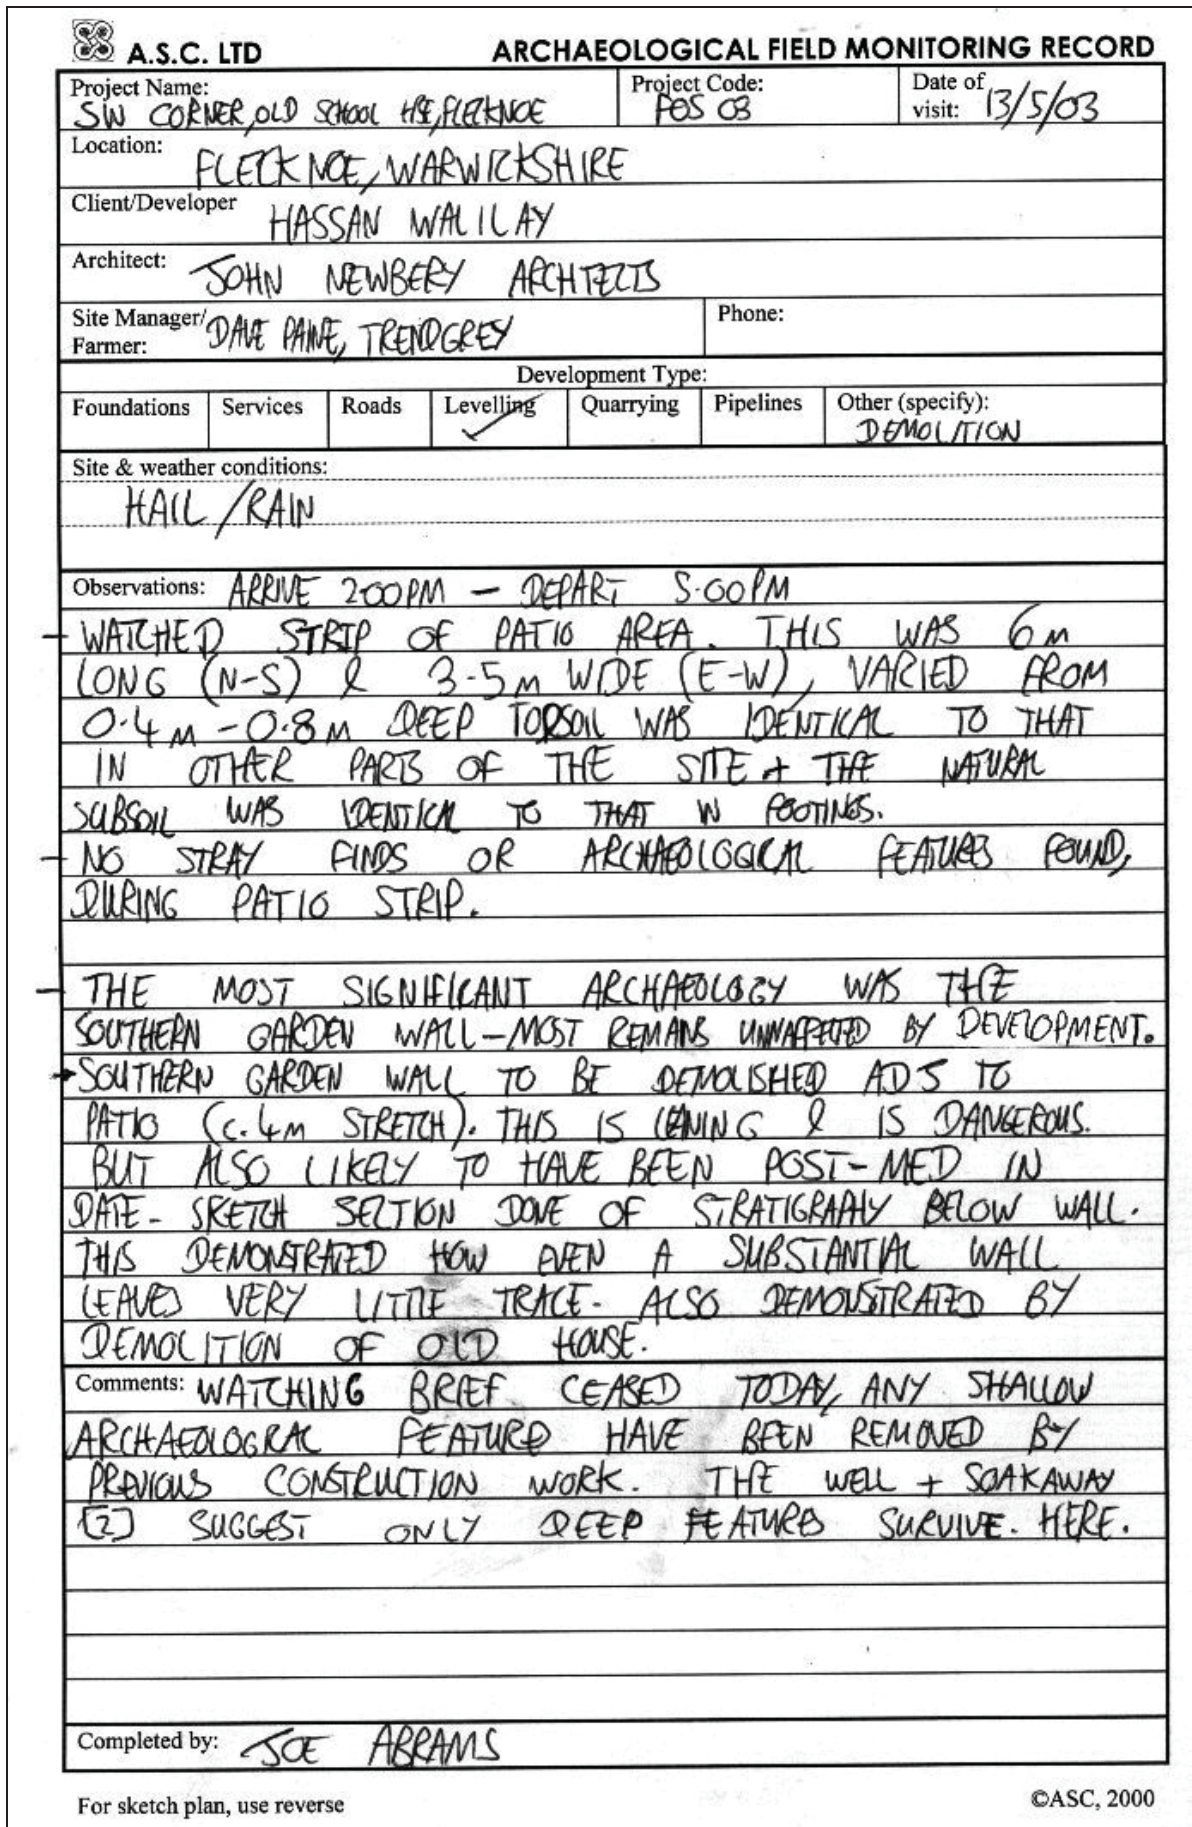 A.S.C. LTD ARCHAEOLOGICAL FIELD MONITORING RECORD
Project Name: Project Code: Date of visit: 13/5/03
SW CORNER, OLD SCHOOL HSE, FLECKNOE FOS 03
Location:
FLECKNOE, WARWICKSHIRE
Client/Developer
HASSAN WALILAY
Architect:
JOHN NEWBERY ARCHITECTS
Site Manager/ Farmer: DAVE PAINE, TRENDGREY Phone:
Development Type:
Foundations Services Roads Levelling ✓ Quarrying Pipelines Other (specify):
DEMOLITION
Site & weather conditions:
HAIL / RAIN
Observations: ARRIVE 2:00PM - DEPART 5.00PM
- WATCHED STRIP OF PATIO AREA. THIS WAS 6m
LONG (N-S) & 3.5m WIDE (E-W), VARIED FROM
0.4m - 0.8m DEEP TOPSOIL WAS IDENTICAL TO THAT
IN OTHER PARTS OF THE SITE + THE NATURAL
SUBSOIL WAS IDENTICAL TO THAT IN FOOTINGS.
- NO STRAY FINDS OR ARCHAEOLOGICAL FEATURES FOUND,
DURING PATIO STRIP.
- THE MOST SIGNIFICANT ARCHAEOLOGY WAS THE
SOUTHERN GARDEN WALL - MOST REMAINS UNNAFFECTED BY DEVELOPMENT.
→ SOUTHERN GARDEN WALL TO BE DEMOLISHED ADJ TO
PATIO (c. 4m STRETCH). THIS IS LEANING & IS DANGEROUS.
BUT ALSO LIKELY TO HAVE BEEN POST-MED IN
DATE - SKETCH SECTION DONE OF STRATIGRAPHY BELOW WALL.
THIS DEMONSTRATED HOW EVEN A SUBSTANTIAL WALL
LEAVES VERY LITTLE TRACE - ALSO DEMONSTRATED BY
DEMOLITION OF OLD HOUSE.
Comments: WATCHING BRIEF CEASED TODAY, ANY SHALLOW
ARCHAEOLOGICAL FEATURES HAVE BEEN REMOVED BY
PREVIOUS CONSTRUCTION WORK. THE WELL + SOAKAWAY
[2] SUGGEST ONLY DEEP FEATURES SURVIVE. HERE.
Completed by: JOE ABRAMS
For sketch plan, use reverse ©ASC, 2000